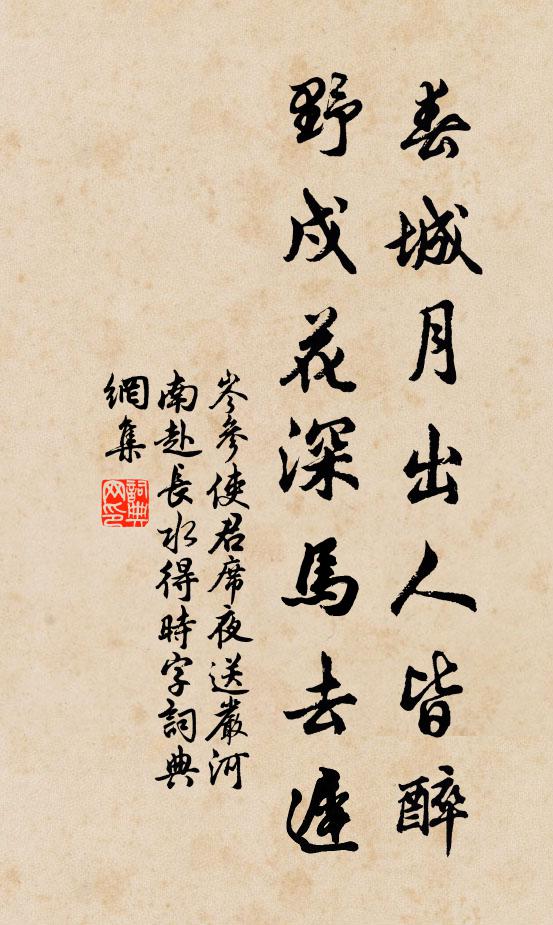 春城月出人皆醉
野戍花深馬去遲
岑參使君席夜送嚴河
南赴長水得時字詞典
網集
詞典网印